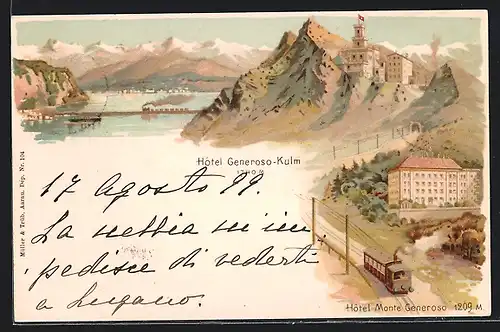 Hôtel Generoso-Kulm
1740 M
17 Agosto 99.
La nebbia m'im
pedisce di vederti
a Lugano.
Hôtel Monte Generoso 1209 M
Müller & Trüb, Aarau, Dép. Nr. 104